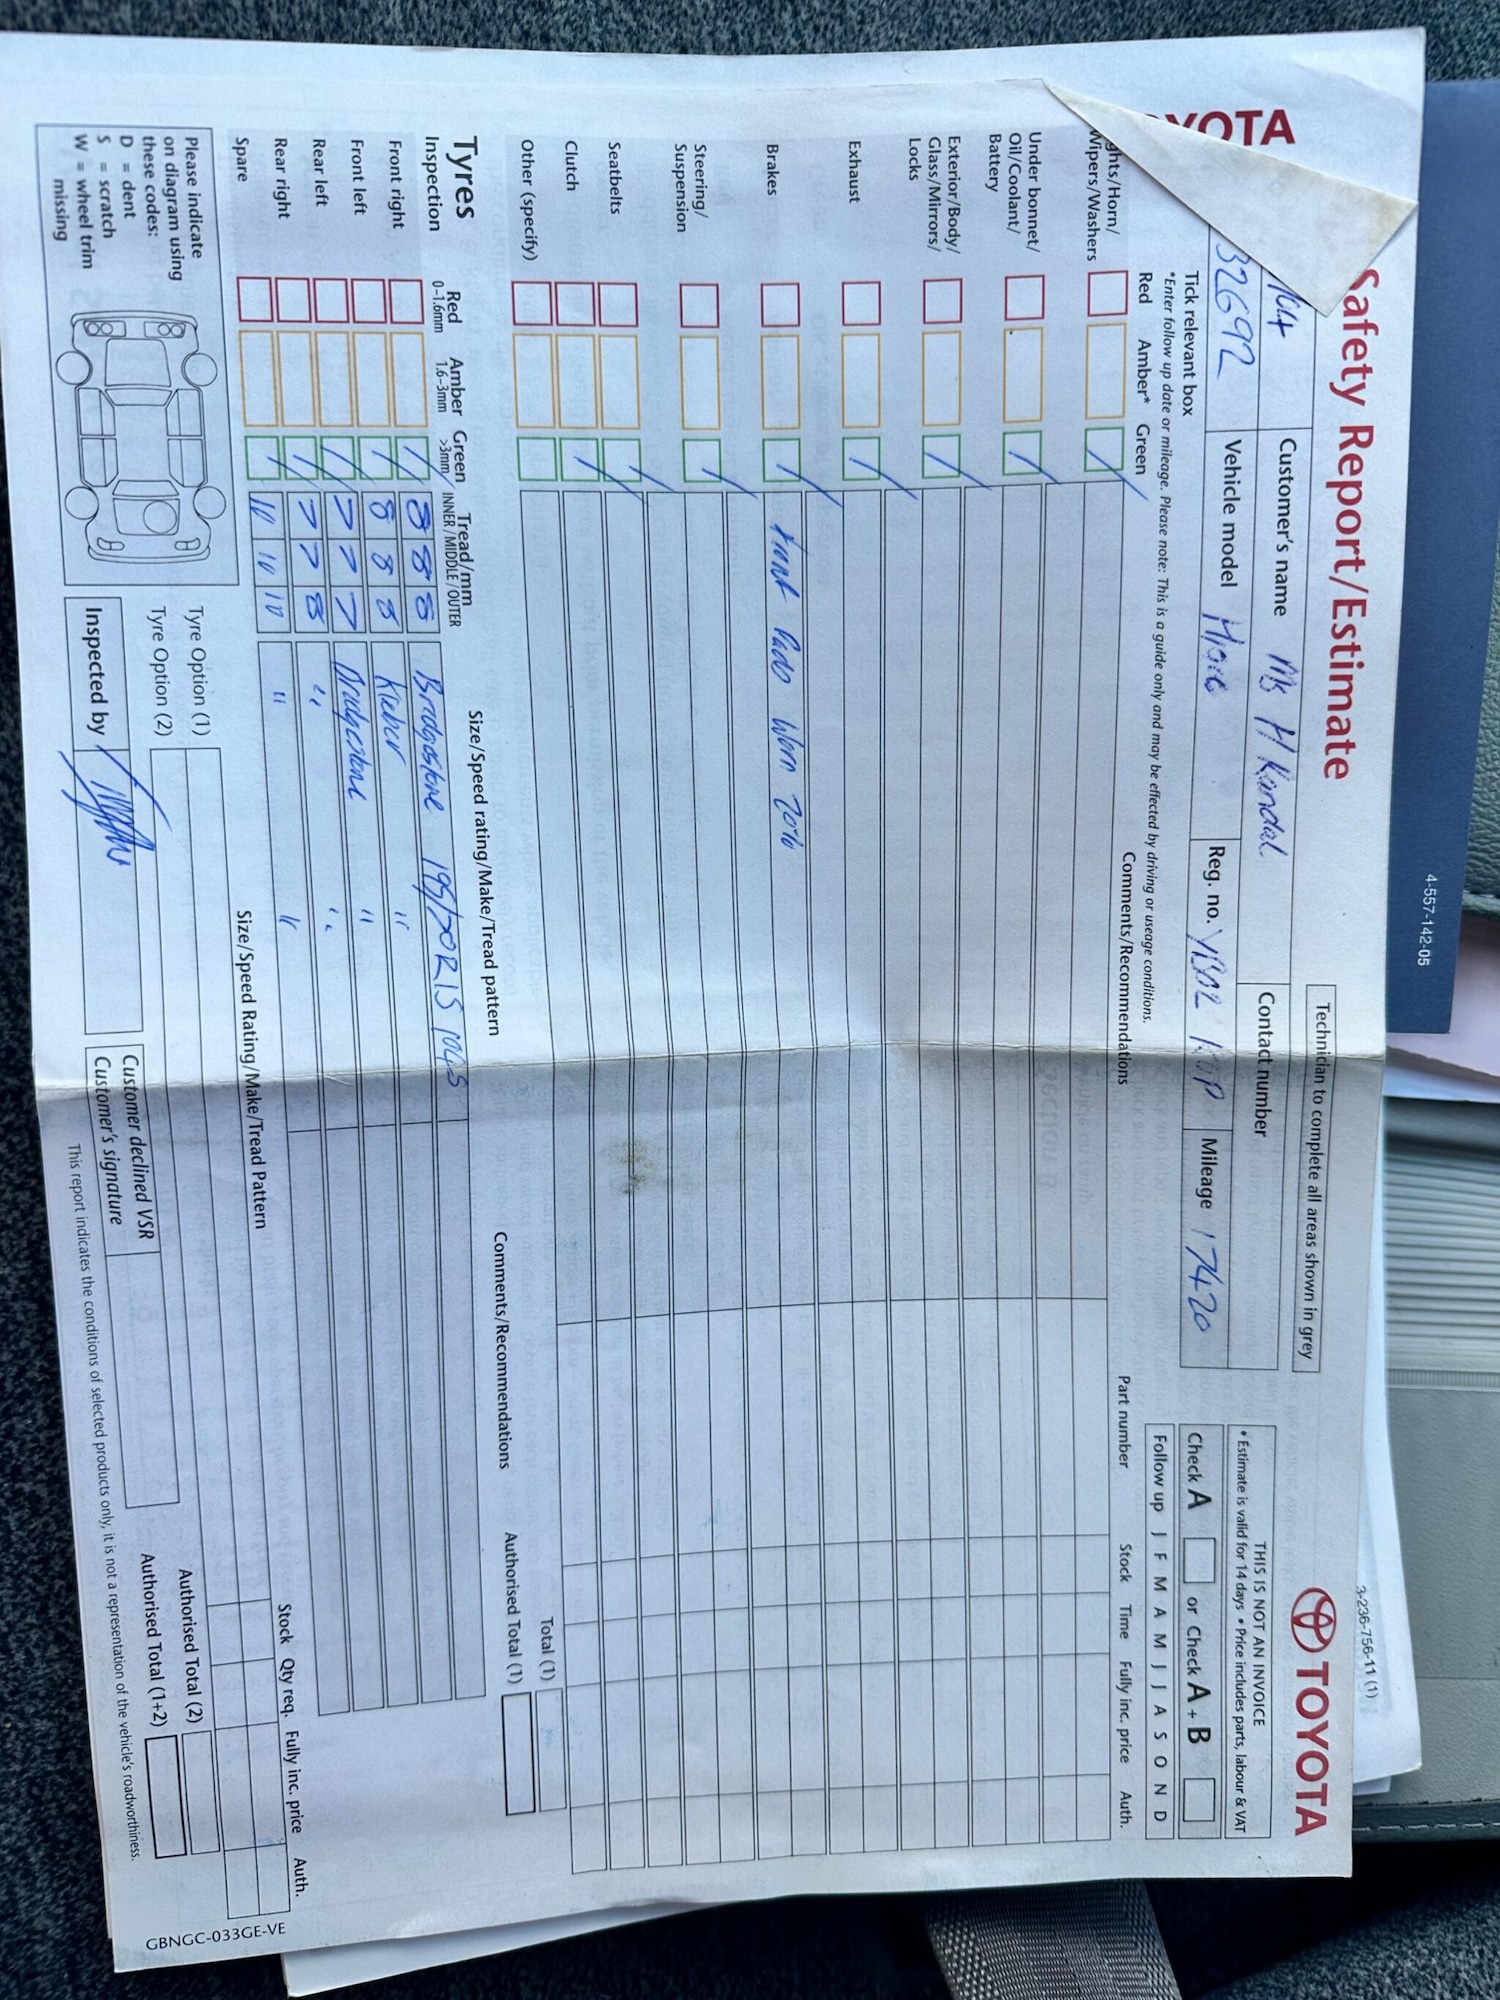 4-557-142-05
3-236-756-11 (1)
YOTA
Safety Report/Estimate
Technician to complete all areas shown in grey
TOYOTA
Customer's name Ms H Kendal
Contact number
THIS IS NOT AN INVOICE
* Estimate is valid for 14 days • Price includes parts, labour & VAT
32692
Vehicle model Hiace
Reg. no.
Mileage 17420
Check A or Check A + B
Tick relevant box
*Enter follow up date or mileage. Please note: This is a guide only and may be effected by driving or useage conditions.
Follow up J F M A M J J A S O N D
Red Amber* Green
Comments/Recommendations
Part number
Stock Time Fully inc. price Auth.
ghts/Horn/
Wipers/Washers
Under bonnet/
Oil/Coolant/
Battery
Exterior/Body/
Glass/Mirrors/
Locks
Exhaust
Brakes
Front Pads Worn 70%
Steering/
Suspension
Seatbelts
Clutch
Other (specify)
Total (1)
Authorised Total (1)
Tyres
Inspection
Red
0-1.6mm
Amber
1.6-3mm
Green
>3mm
Tread/mm
INNER/MIDDLE/OUTER
Size/Speed rating/Make/Tread pattern
Comments/Recommendations
Front right 8 8 8 Bridgestone 195/70R15 104S
Front left 8 8 8 Kleber " 
Rear left 7 7 7 Bridgestone "
Rear right 7 7 8 " "
Spare 10 10 10 " "
Size/Speed Rating/Make/Tread Pattern
Stock Qty req. Fully inc. price Auth.
Please indicate
on diagram using
these codes:
D = dent
S = scratch
W = wheel trim
missing
Tyre Option (1)
Tyre Option (2)
Authorised Total (2)
Authorised Total (1+2)
Inspected by
Customer declined VSR
Customer's signature
This report indicates the conditions of selected products only, it is not a representation of the vehicle's roadworthiness.
GBNGC-033GE-VE